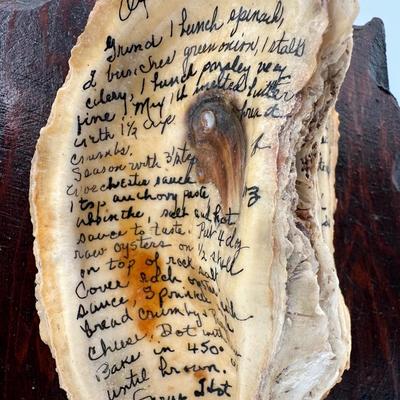 Grind 1 bunch spinach,
2 bunches green onion, 1 stalk
celery, 1 bunch parsley very
fine. melted butter
with 1 1/2 cup bread
crumbs.
Season with
worchester sauce
1 tsp anchovy paste
absinthe, salt and hot
sauce to taste. Put 4 dz
raw oysters on 1/2 shell
on top of rock salt
Cover each
sauce Sprinkle
bread crumbs
cheese. Dot with
Bake in 450°
until brown.
Hot